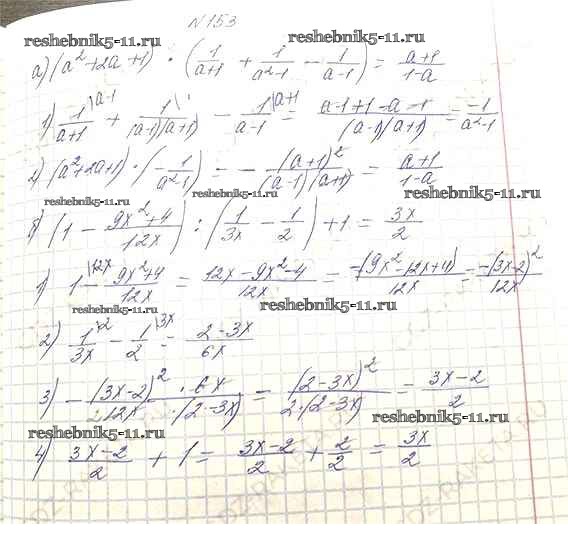 N153
reshebnik5-11.ru reshebnik5-11.ru
а) (a²+2a+1) · (1/(a+1) + 1/(a²-1) - 1/(a-1)) = (a+1)/(1-a)
1) 1/(a+1) \a-1 + 1/((a-1)(a+1)) \1 - 1/(a-1) \a+1 = (a-1+1-a-1)/((a-1)(a+1)) = -1/(a²-1)
2) (a²+2a+1) · (-1/(a²-1)) = -(a+1)²/((a-1)(a+1)) = (a+1)/(1-a)
reshebnik5-11.ru reshebnik5-11.ru
б) (1 - (9x²+4)/12x) : (1/3x - 1/2) + 1 = 3x/2
1) 1 \12x - (9x²+4)/12x = (12x-9x²-4)/12x = -(9x²-12x+4)/12x = -(3x-2)²/12x
reshebnik5-11.ru reshebnik5-11.ru
2) 1/3x \2 - 1/2 \3x = (2-3x)/6x
3) -(3x-2)² · 6x/(12x · (2-3x)) = (2-3x)²/(2·(2-3x)) = (3x-2)/2
reshebnik5-11.ru reshebnik5-11.ru
4) (3x-2)/2 + 1 = (3x-2)/2 + 2/2 = 3x/2